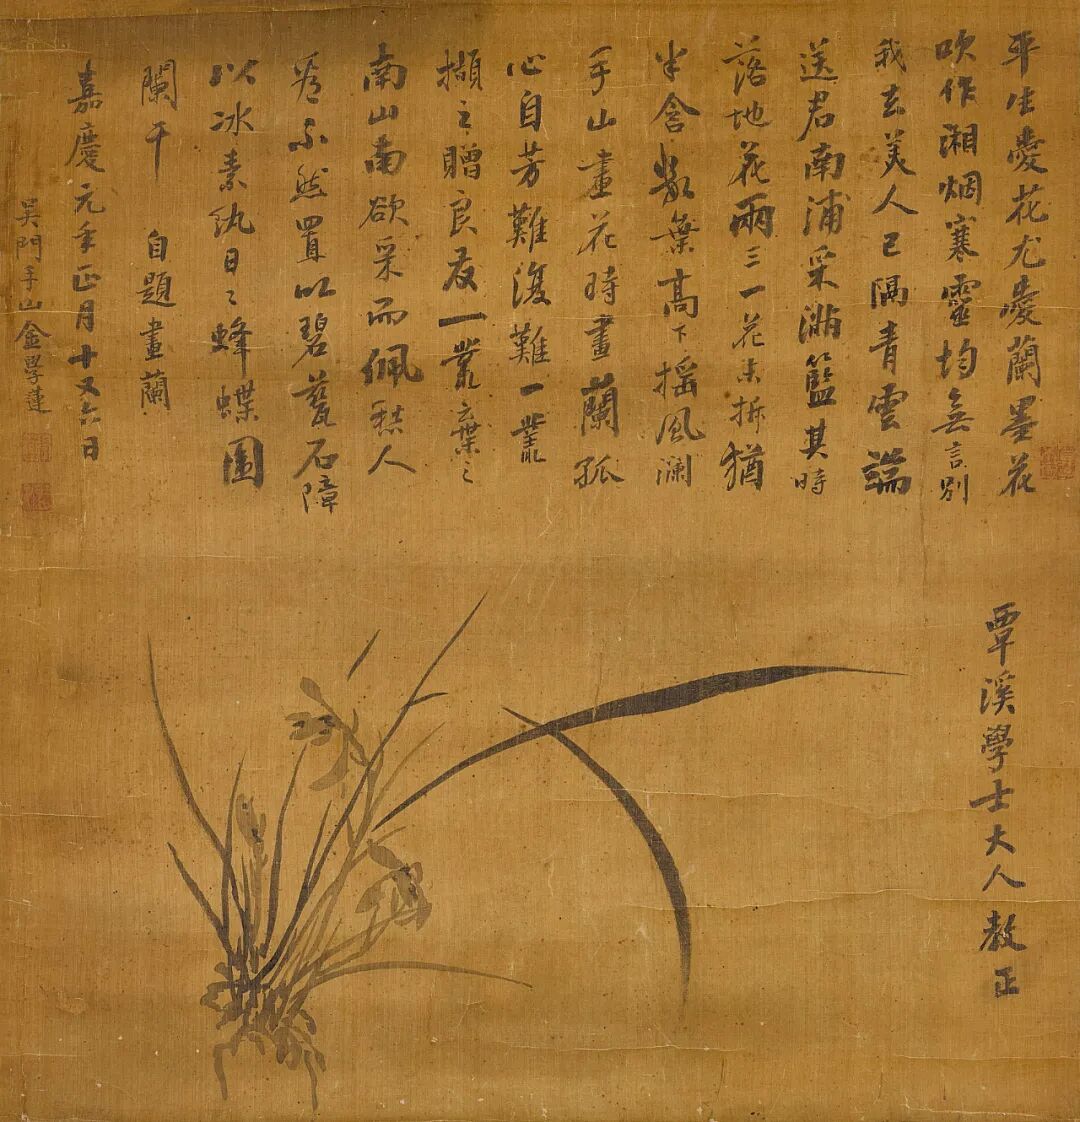 平生愛花尤愛蘭墨花
吹作湘烟寒靈均無言別
我去美人已隔青雲端
送君南浦采滿籃其時
落地花兩三一花未拆猶
半含敷葉高下搖風瀾
手山畫花時畫蘭孤
心自芳難復難一叢
擷之贈良友一叢葉之
南山南欲采而佩愁人
看不然置以碧甆石障
以冰素紈日〻蜂蝶圍
闌干 自題畫蘭
嘉慶元年正月十又六日
吳門手山金學蓮
覃溪學士大人教正